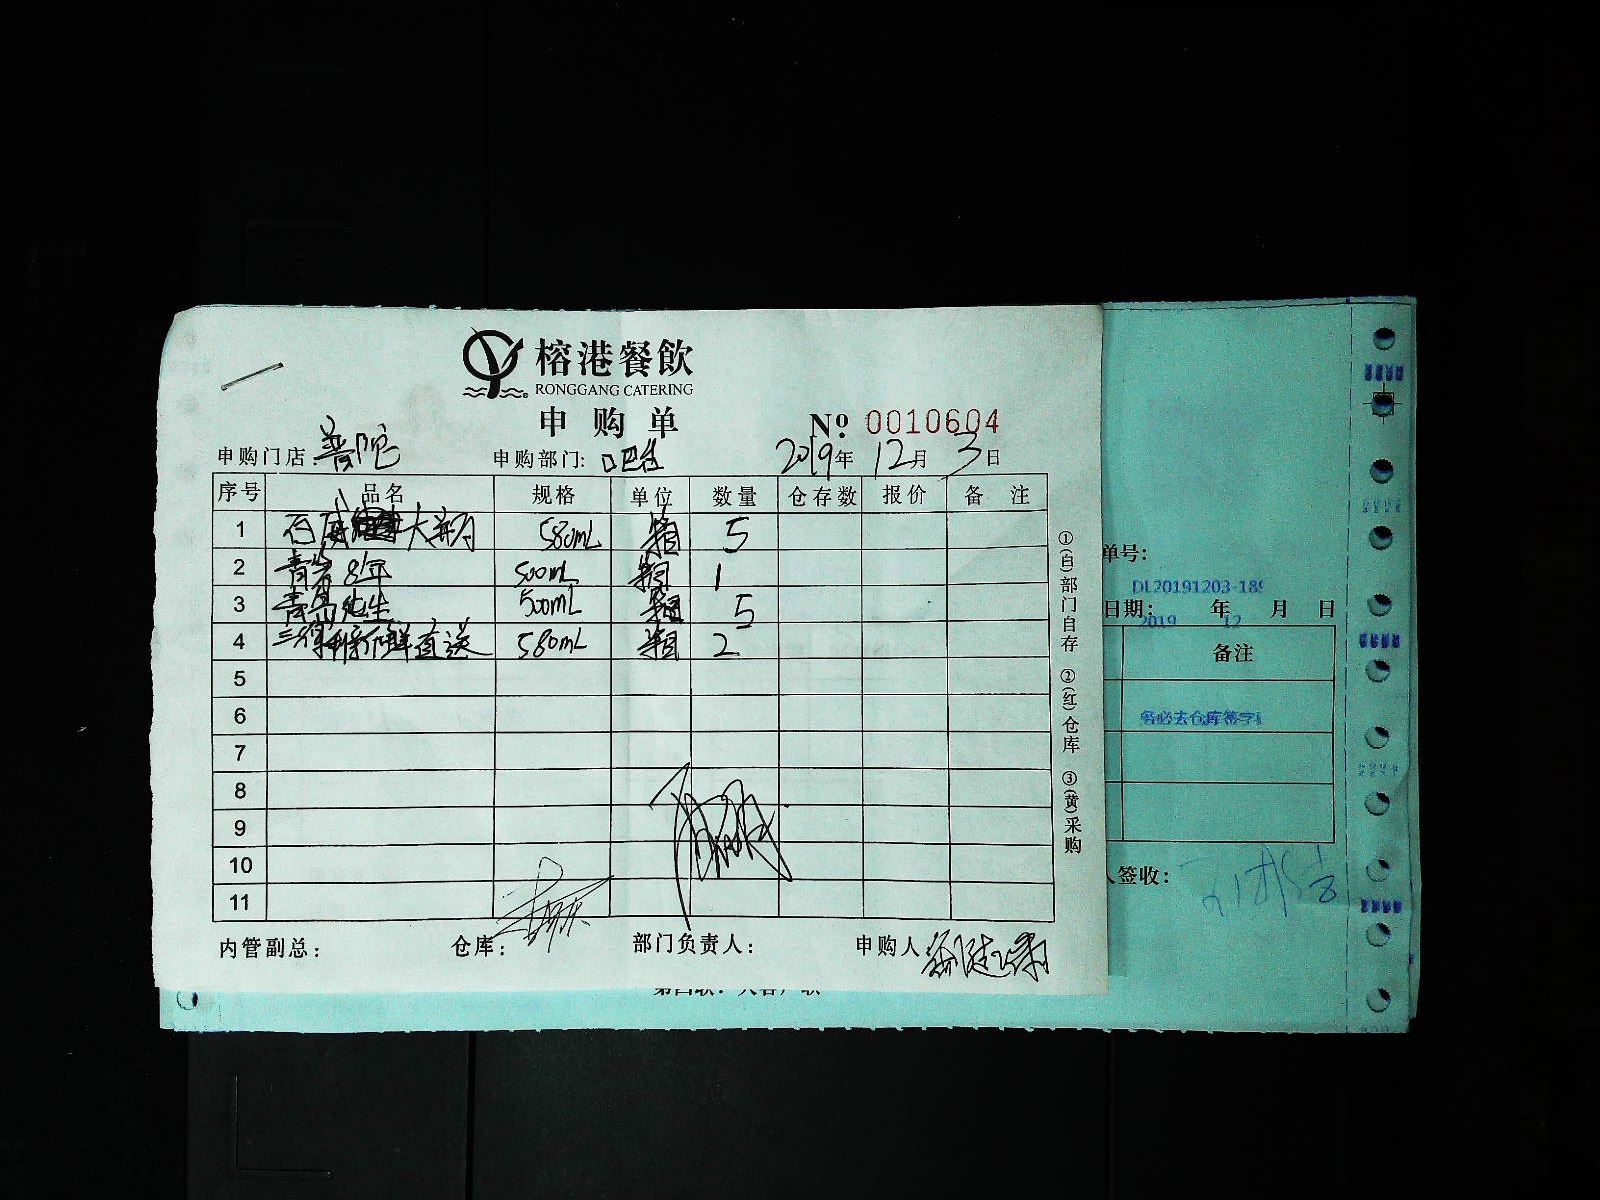 榕港餐飲
RONGGANG CATERING
申购单
№ 0010604
申购门店:普陀 申购部门:吧台 2019年12月3日
序号 品名 规格 单位 数量 仓存数 报价 备 注
1 百威 大 580mL 箱 5
2 青岛 8年 500mL 箱 1
3 青岛纯生 500mL 箱 5
4 三得利新鲜直送 580mL 箱 2
5
6
7
8
9
10
11
内管副总: 仓库: 部门负责人: 申购人:
①(白)部门自存 ②(红)仓库 ③(黄)采购
单号:
DL20191203-185
日期: 年 月 日
2019 12
备注
务必去仓库签字
人签收: